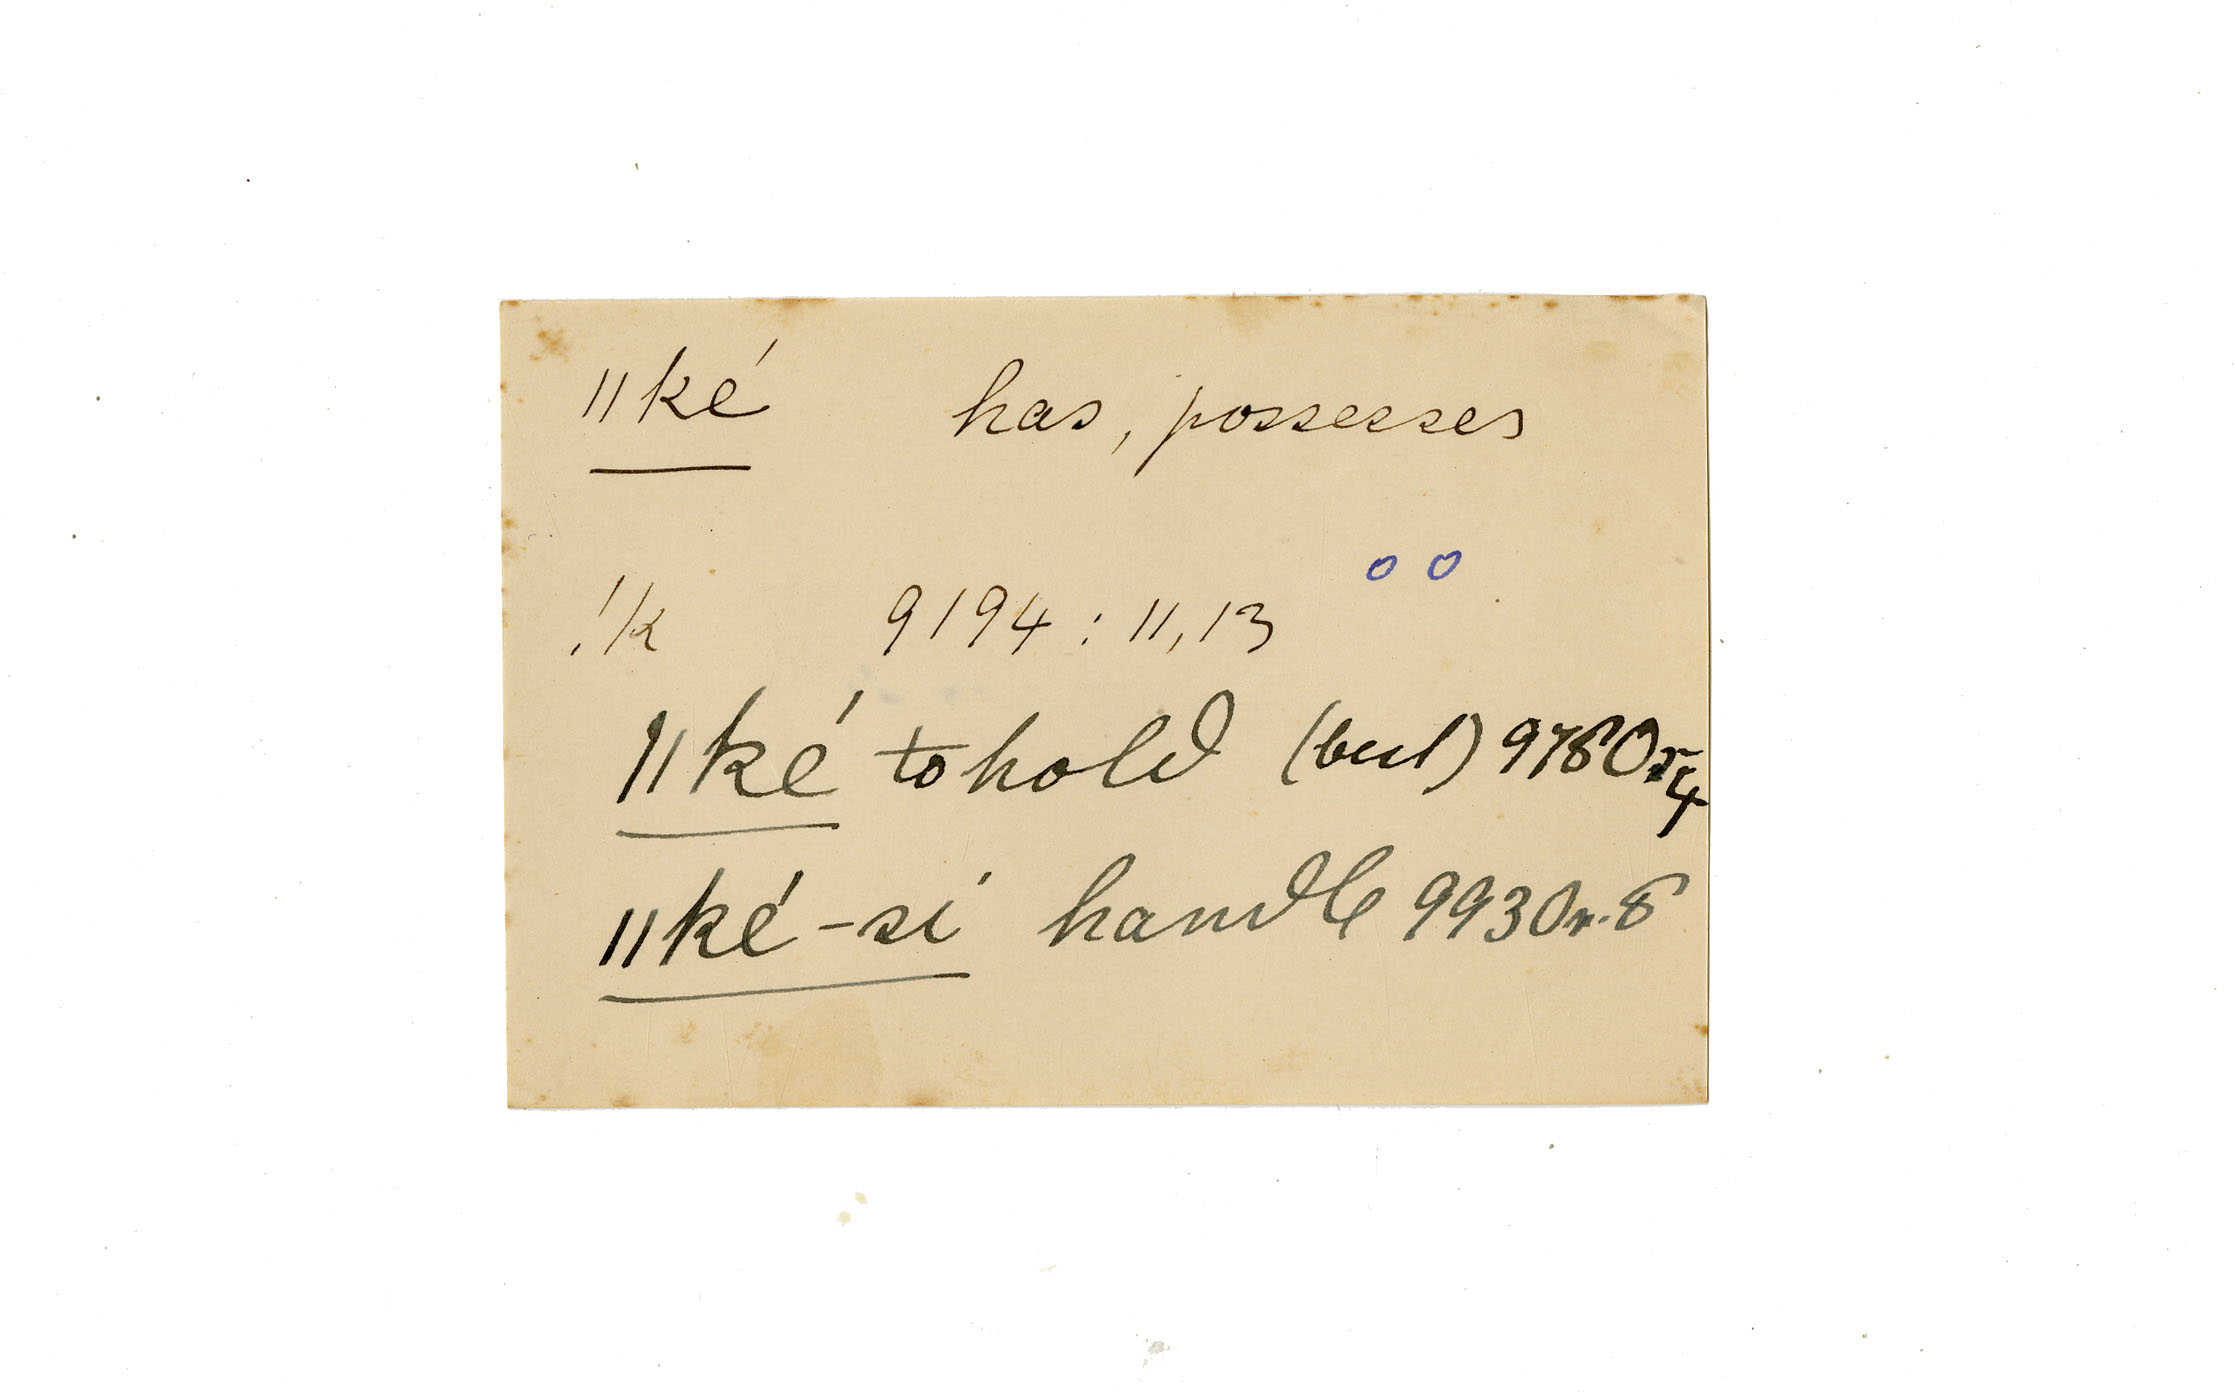 ǁké has, possesses
o o
!k 9194 : 11, 13
ǁké to hold 9780 r 4
ǁké-si handle 9930 r. 8